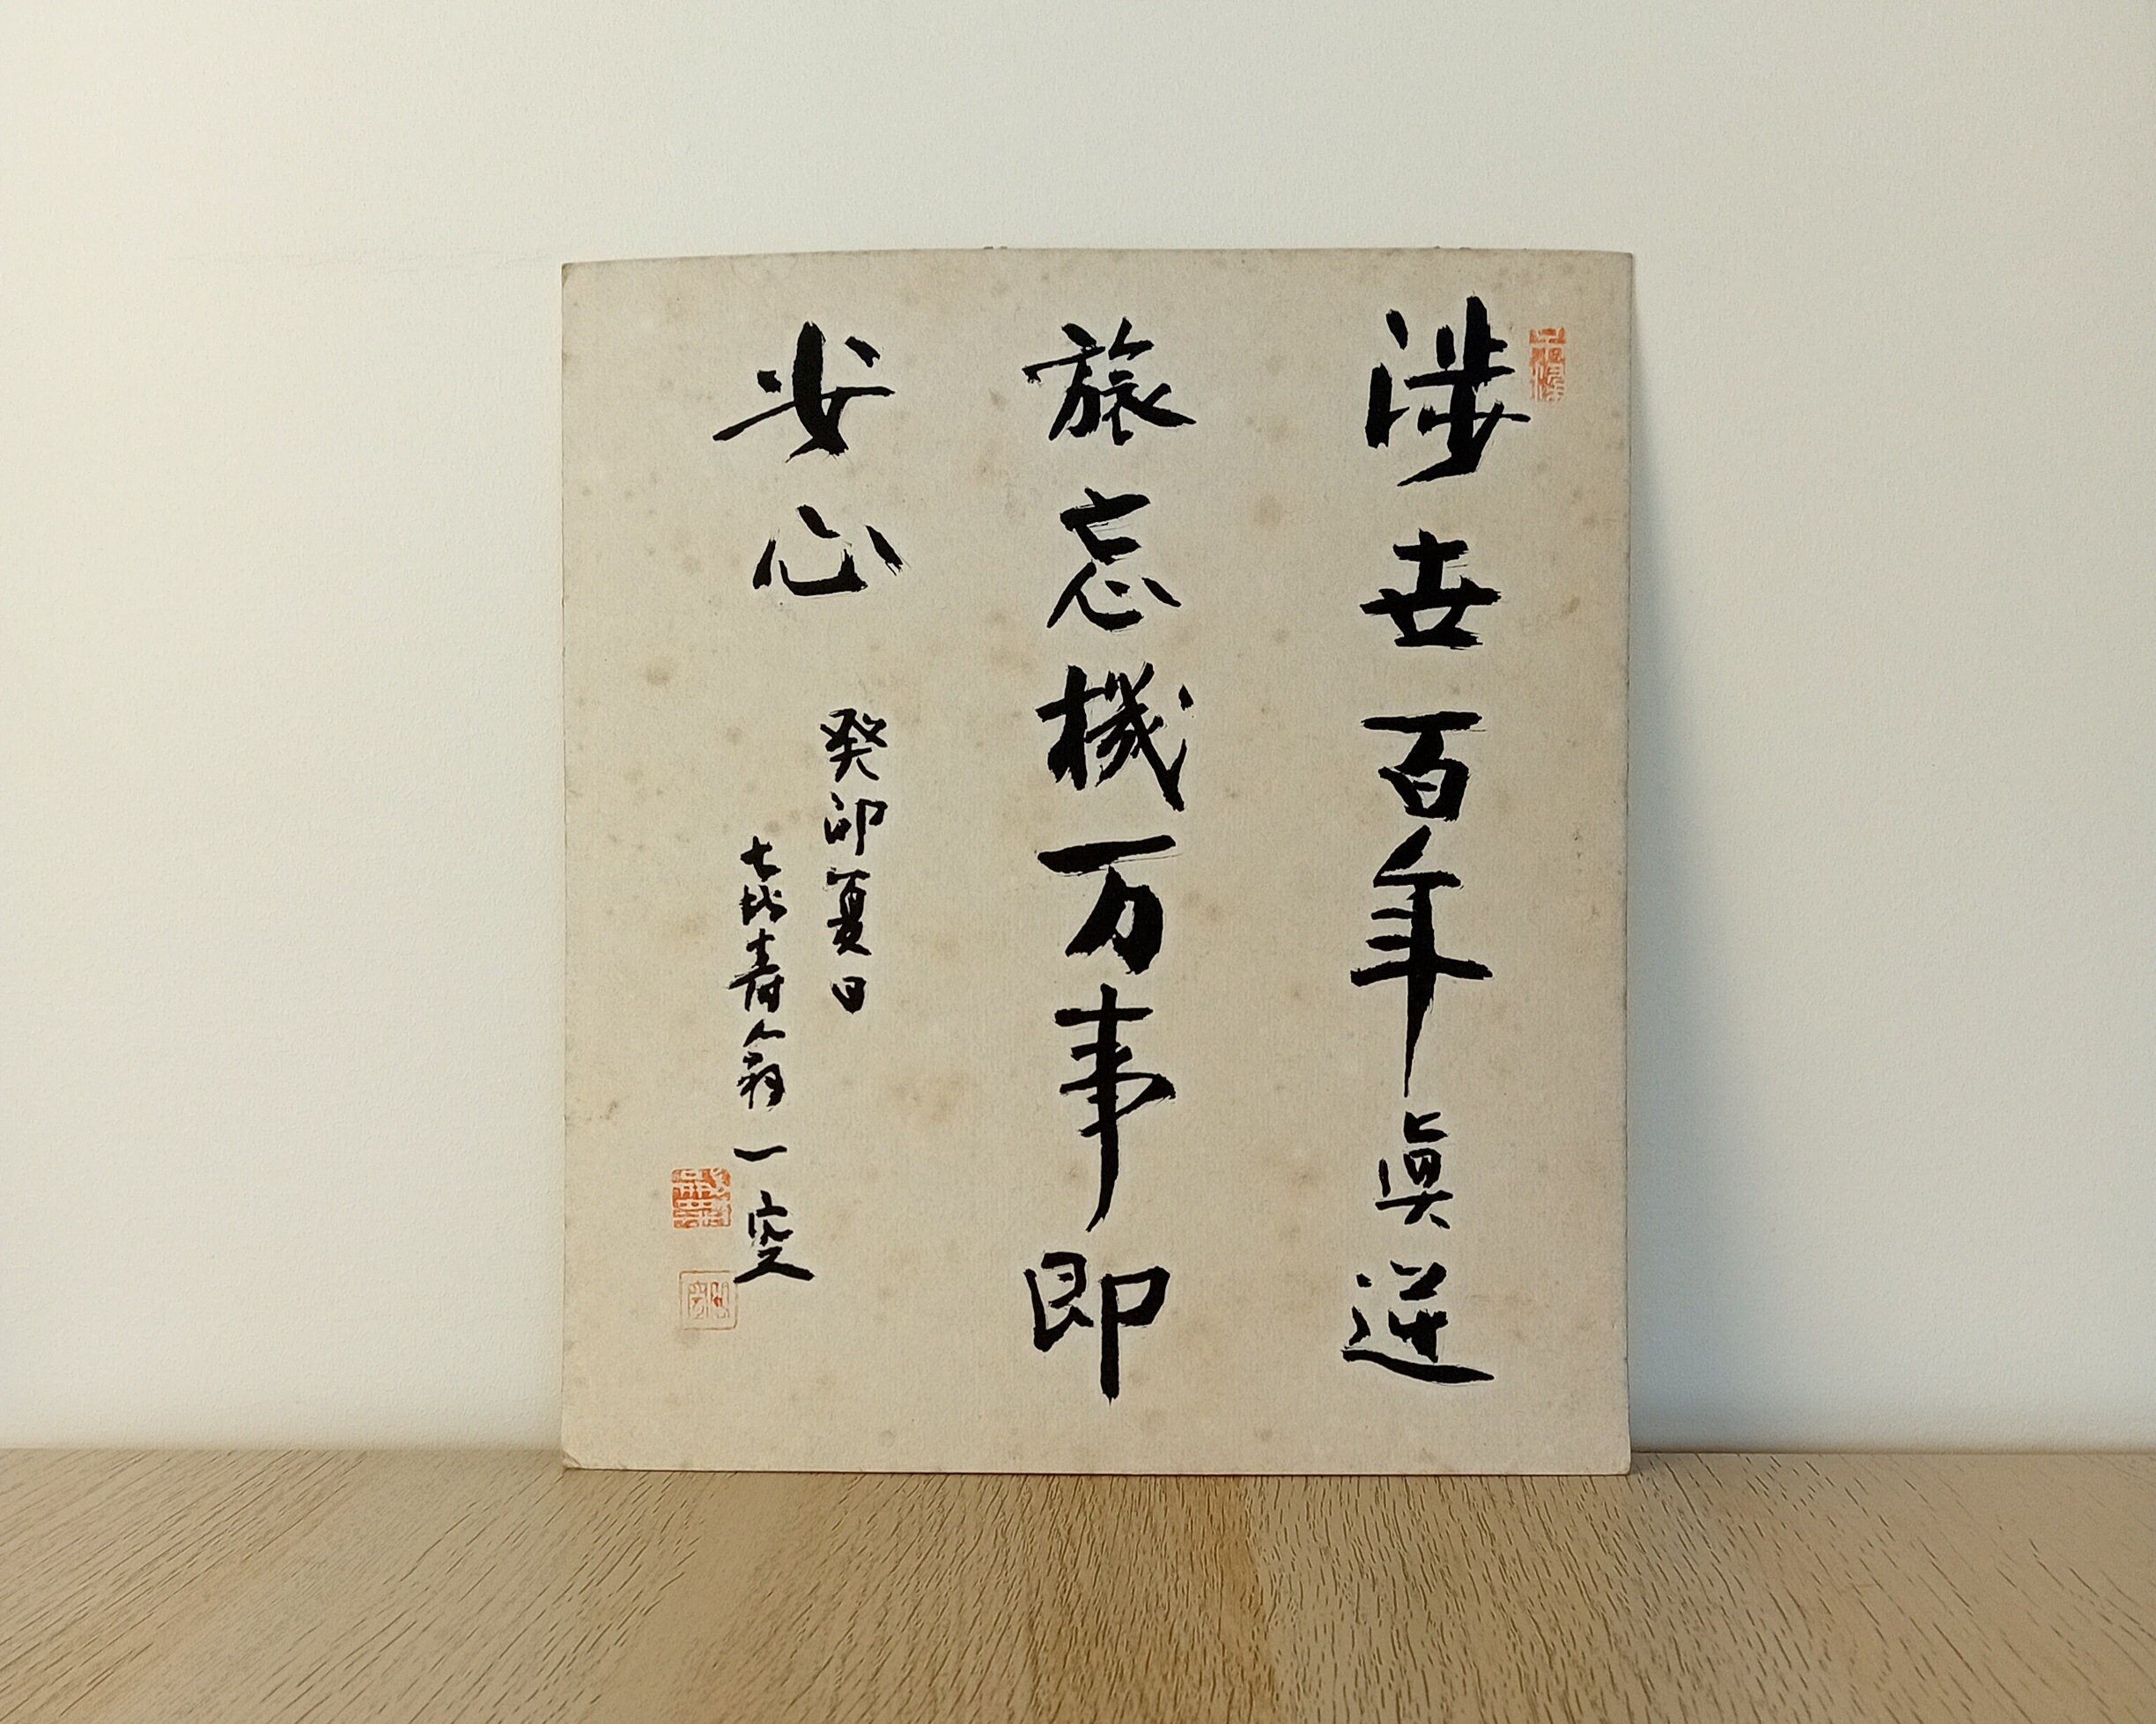 涉世百年眞逆
旅忘機万事即
安心
癸卯夏日
七十七壽翁釋一空